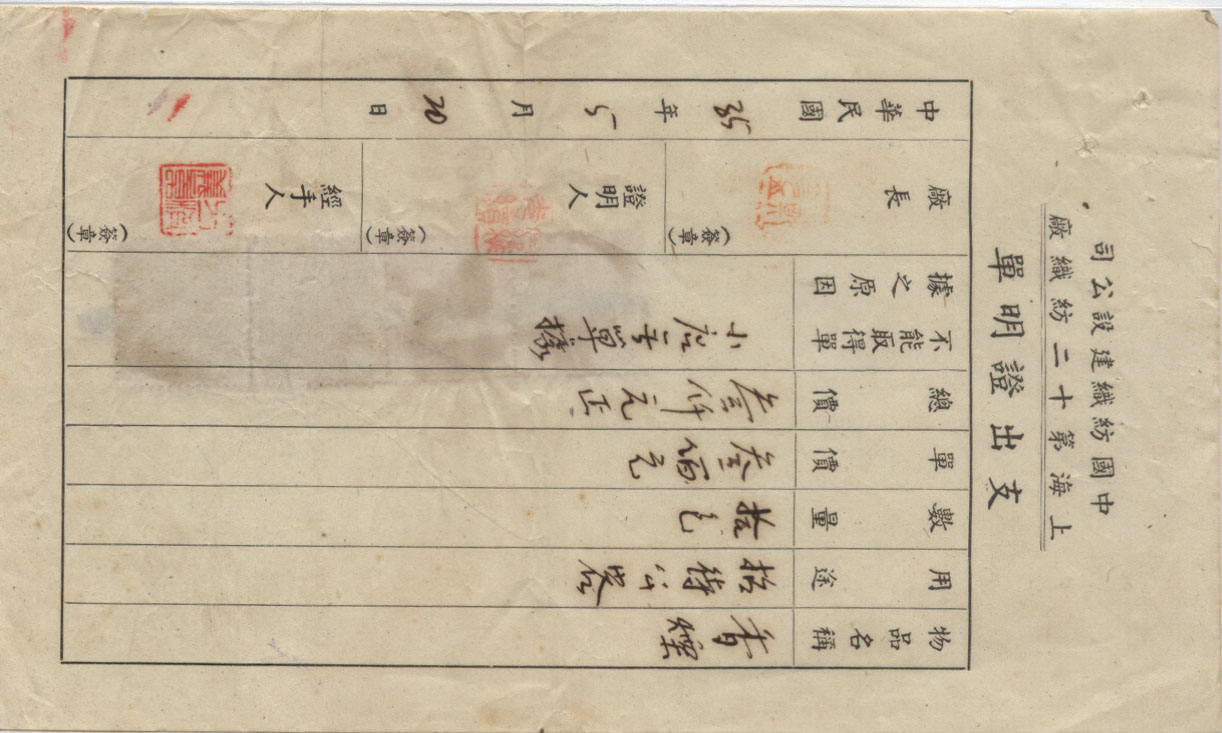 中國紡織建設公司
上海第十二紡織廠
支出證明單
物品名稱
香煙
用途
招待
數量
拾包
單價
叁佰元
總價
叁仟元正
不能取得單據之原因
小店无單據
廠長
(簽章)
證明人
(簽章)
經手人
(簽章)
中華民國35年5月20日